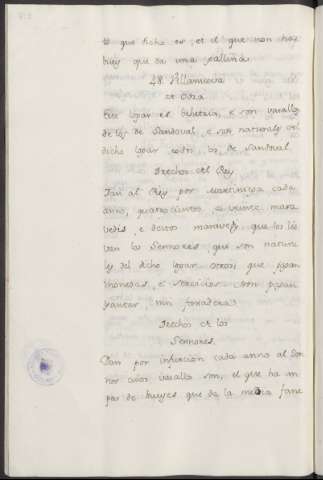 to que dicho es, et el que non há
buey que da una gallina.
48. Villanueva
de Odra
Este logar es behetria, e son vasallos
de los de Sandoval, e son naturales del
dicho logar todos los de Sandoval.
Drechos del Rey
Dan al Rey por martiniega cada
anno, quatrocientos, e veinte mara
vedis, e destos maravedis que los lie
van los Sennores que son natura
les del dicho logar. Otrosi que pagan
monedas, e servicios. Non pagan
yantar, nin fonsadera.
Drechos de los
Sennores.
Dan por infurcion cada anno al Sen
nor cuios vasallos son, el que ha un
par de bueyes que da la media fane